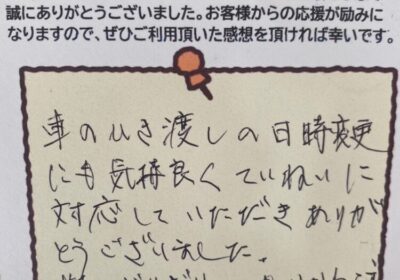 誠にありがとうございました。お客様からの応援が励みに
なりますので、ぜひご利用頂いた感想を頂ければ幸いです。
車のひき渡しの日時変更
にも気持良くていねいに
対応していただきありが
とうございました。